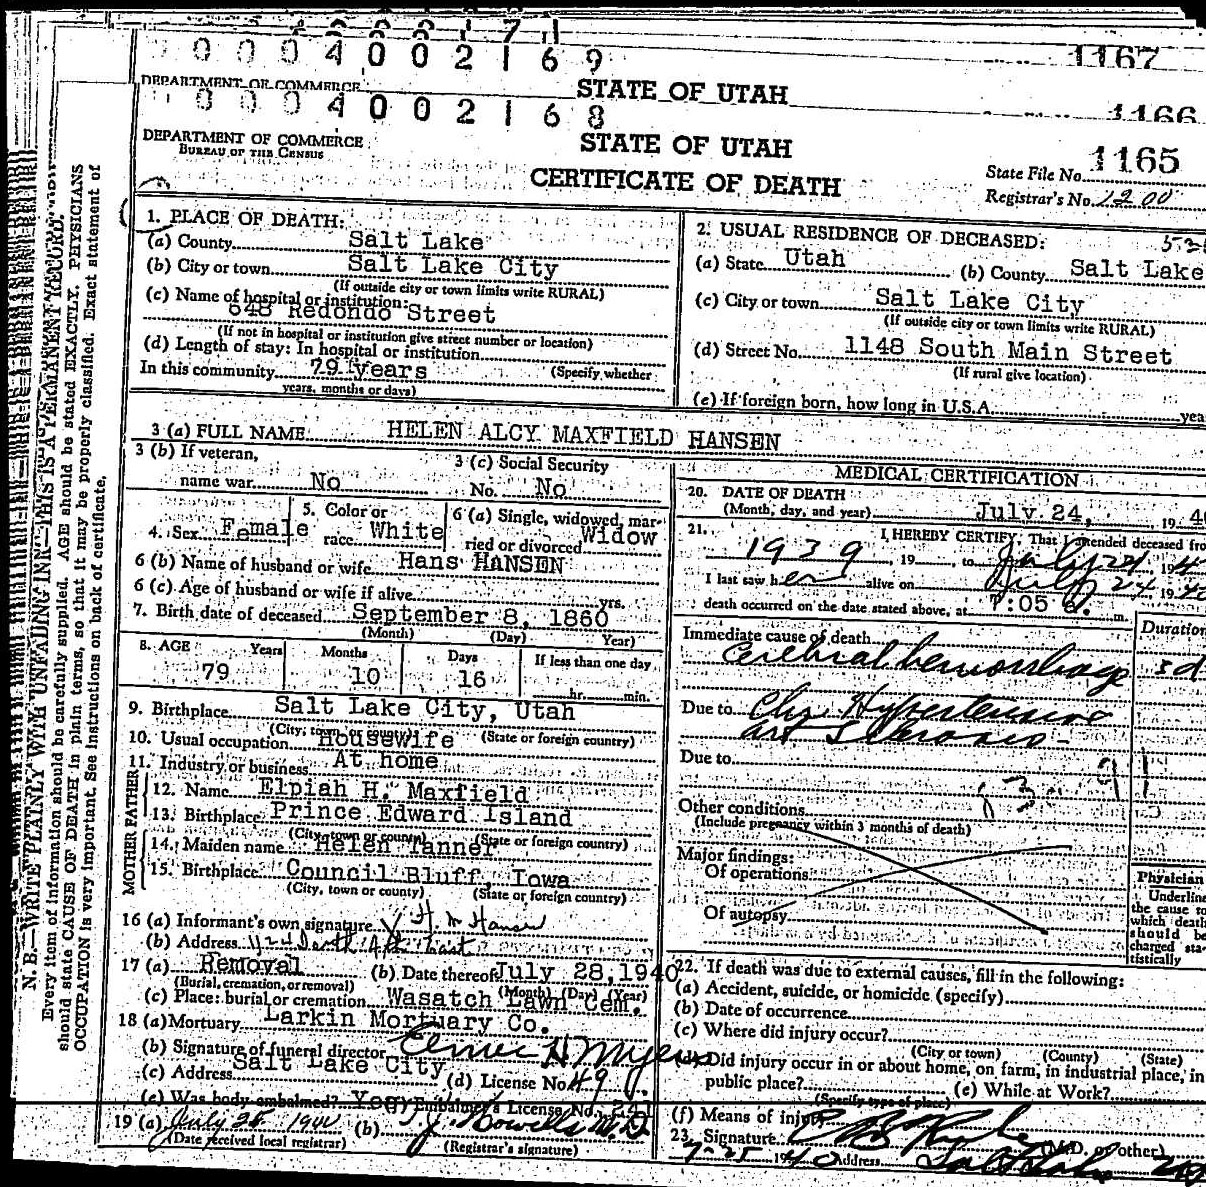 0 0 0 4 0 0 2 1 6 9
1167
DEPARTMENT OF COMMERCE
STATE OF UTAH
1166
0 0 0 4 0 0 2 1 6 8
DEPARTMENT OF COMMERCE
BUREAU OF THE CENSUS
STATE OF UTAH
CERTIFICATE OF DEATH
State File No. 1165
Registrar's No. 1200
N. B.—WRITE PLAINLY WITH UNFADING INK—THIS IS A PERMANENT RECORD.
Every item of information should be carefully supplied. AGE should be stated EXACTLY. PHYSICIANS
should state CAUSE OF DEATH in plain terms, so that it may be properly classified. Exact statement of
OCCUPATION is very important. See instructions on back of certificate.
1. PLACE OF DEATH:
(a) County Salt Lake
(b) City or town Salt Lake City
(If outside city or town limits write RURAL)
(c) Name of hospital or institution:
648 Redondo Street
(If not in hospital or institution give street number or location)
(d) Length of stay: In hospital or institution
In this community 79 years (Specify whether
years, months or days)
2. USUAL RESIDENCE OF DECEASED:
(a) State Utah (b) County Salt Lake
(c) City or town Salt Lake City
(If outside city or town limits write RURAL)
(d) Street No. 1148 South Main Street
(If rural give location)
(e) If foreign born, how long in U.S.A.
3 (a) FULL NAME HELEN ALCY MAXFIELD HANSEN
3 (b) If veteran,
name war No
3 (c) Social Security
No. No
4. Sex Female
5. Color or
race White
6 (a) Single, widowed, mar-
ried or divorced Widow
6 (b) Name of husband or wife Hans HANSEN
6 (c) Age of husband or wife if alive yrs.
7. Birth date of deceased September 8, 1860
(Month) (Day) Year)
8. AGE Years Months Days If less than one day
79 10 16 hr. min.
9. Birthplace Salt Lake City, Utah
(City, town or county) (State or foreign country)
10. Usual occupation Housewife
11. Industry or business At home
FATHER
12. Name Elpiah H. Maxfield
13. Birthplace Prince Edward Island
(City town or county) (State or foreign country)
MOTHER
14. Maiden name Helen Tanner
15. Birthplace Council Bluff Iowa
(City, town or county) (State or foreign country)
16 (a) Informant's own signature H. M Hansen
(b) Address
17 (a) Removal (b) Date thereof July 28, 1940
(Burial, cremation, or removal) (Month) (Day) (Year)
(c) Place: burial or cremation Wasatch Lawn Cem.
18 (a) Mortuary Larkin Mortuary Co.
(b) Signature of funeral director
(c) Address Salt Lake City (d) License No. 49
(e) Was body embalmed? Yes Embalmer's License No.
19 (a) July 25 1940 (b)
(Date received local registrar) (Registrar's signature)
MEDICAL CERTIFICATION
20. DATE OF DEATH
(Month, day, and year) July 24, 19 40
21. I HEREBY CERTIFY, That I attended deceased fro
1939, 19 to July 24 194
I last saw her alive on July 24 1940
death occurred on the date stated above, at 7:05 a. m.
Immediate cause of death
Cerebral hemorrhage
Duration
3 d
Due to Chr Hypertensive
art Sclerosis
Due to
Other conditions
(Include pregnancy within 3 months of death)
Major findings:
Of operations
Of autopsy
Physician
Underline
the cause to
which death
should be
charged sta-
tistically
22. If death was due to external causes, fill in the following:
(a) Accident, suicide, or homicide (specify)
(b) Date of occurrence
(c) Where did injury occur?
(City or town) (County) (State)
(d) Did injury occur in or about home, on farm, in industrial place, in
public place? (e) While at Work?
(Specify type of place)
(f) Means of injury
23. Signature (M.D. or other)
7-25 1940 Address Salt Lake